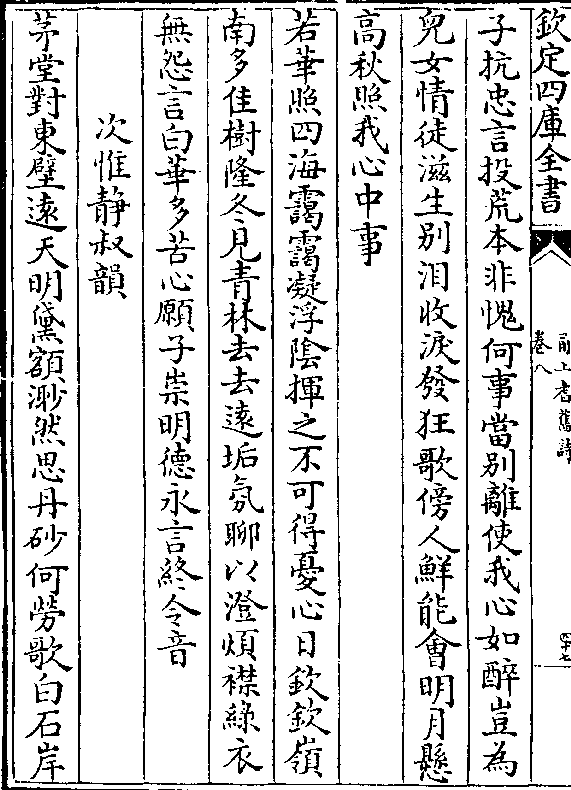 欽定四庫全書
卷八
四十七
子抗忠言投荒本非愧何事當别離使我心如醉豈為
兒女情徒滋生别淚收淚發狂歌傍人鮮能會明月懸
高秋照我心中事
若華照四海靄靄凝浮陰揮之不可得憂心日欽欽嶺
南多佳樹隆冬見青林去去遠垢氛聊以澄煩襟綠衣
無怨言白華多苦心願子崇明德永言終令音
次惟静叔韻
茅堂對東壁遠天明黛額渺然思丹砂何勞歌白石岸